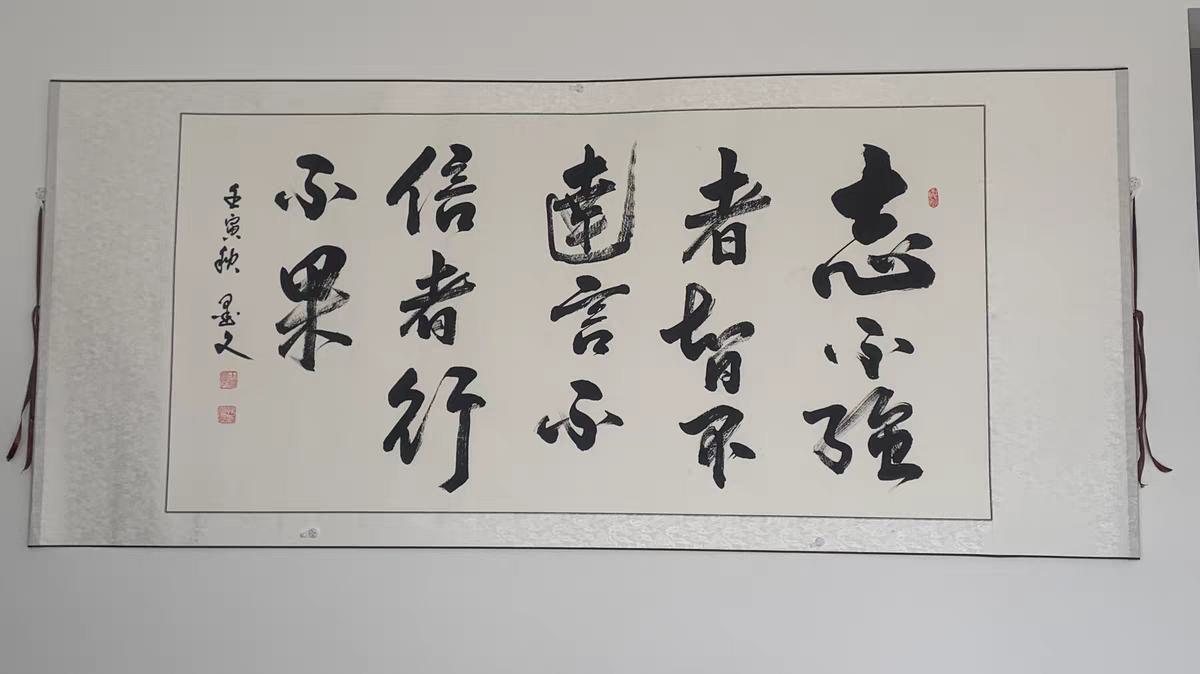 志不強
者智不
達言不
信者行
不果
壬寅秋 墨文